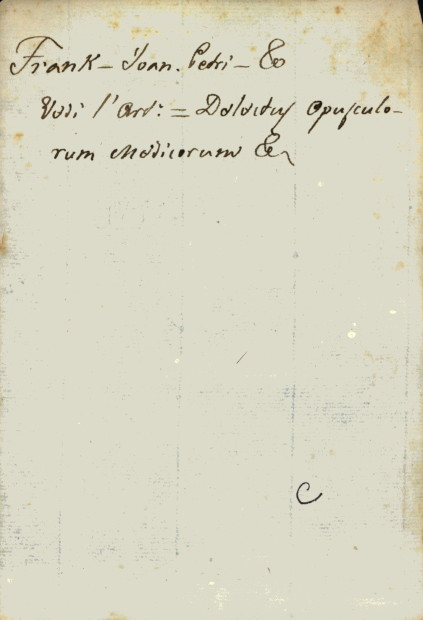 Frank – Joan. Petri – &
Vedi l'Art: = Delectus opusculo-
rum Medicorum &
C